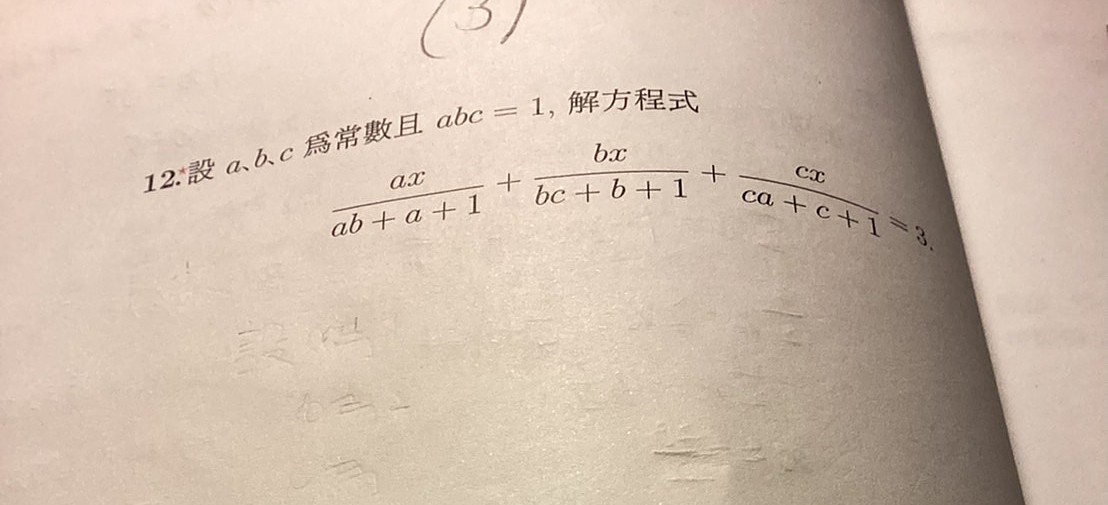 (3)
12.*設 a、b、c 爲常數且 abc = 1, 解方程式
ax/(ab + a + 1) + bx/(bc + b + 1) + cx/(ca + c + 1) = 3.